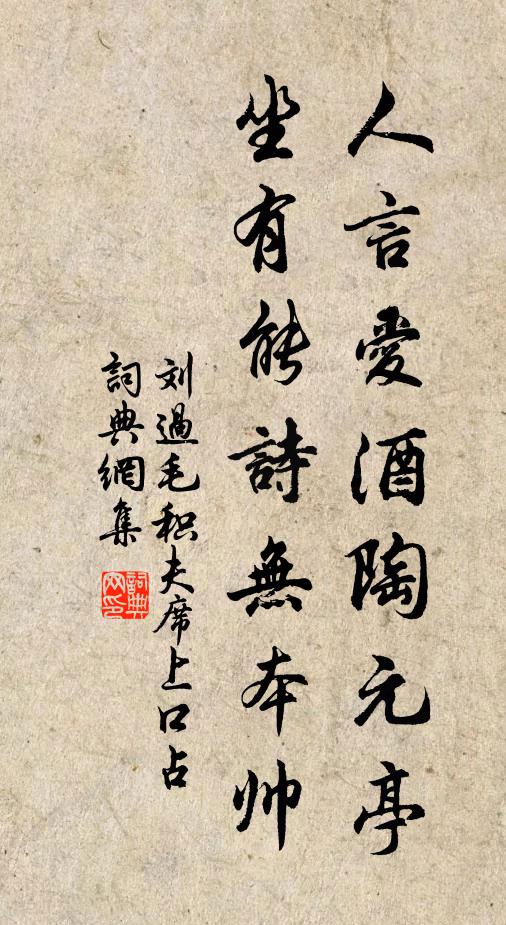 人言愛酒陶元亭
坐有能詩無本帅
刘過毛积夫席上口占
詞典網集
詞典网印